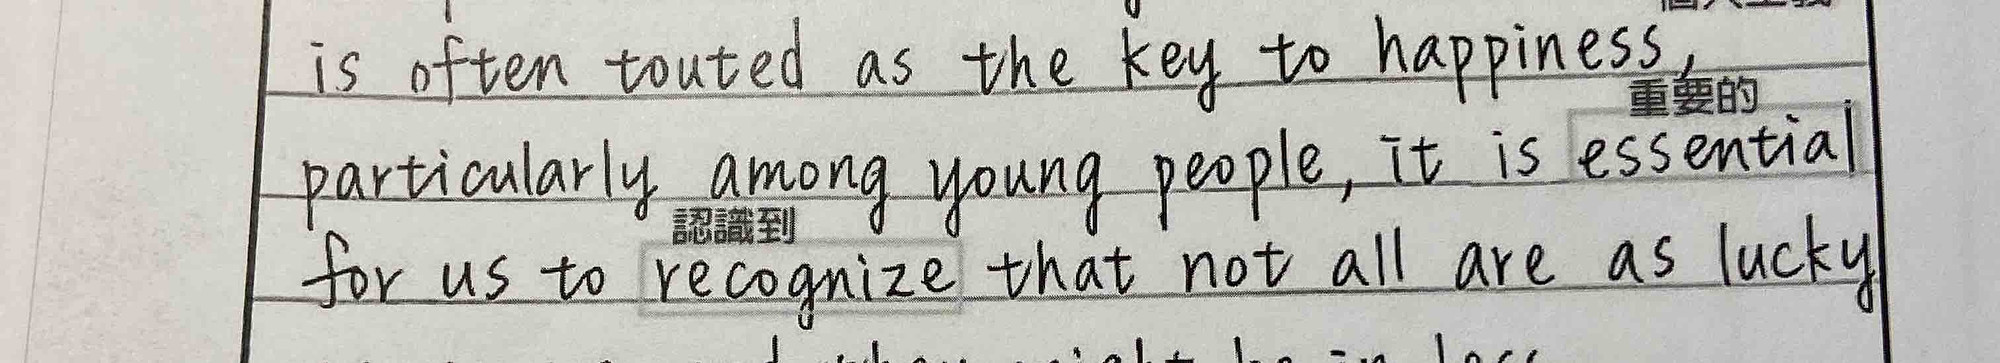 is often touted as the key to happiness,
重要的
particularly among young people, it is essential
認識到
for us to recognize that not all are as lucky